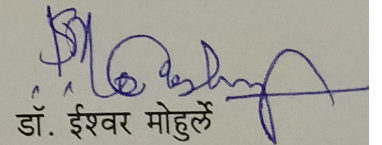 डॉ. ईश्वर मोहुर्ले